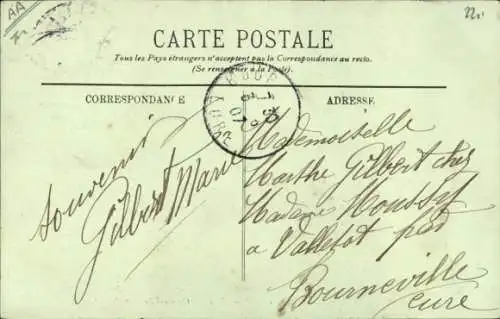 AA
22.
CARTE POSTALE
Tous les Pays étrangers n'acceptent pas la Correspondance au recto.
(Se renseigner à la Poste)
CORRESPONDANCE
ADRESSE
Souvenir
Gilbert Marie
Mademoiselle
Marthe Gilbert chez
Madame
a Valletot par
Bourneville
Eure